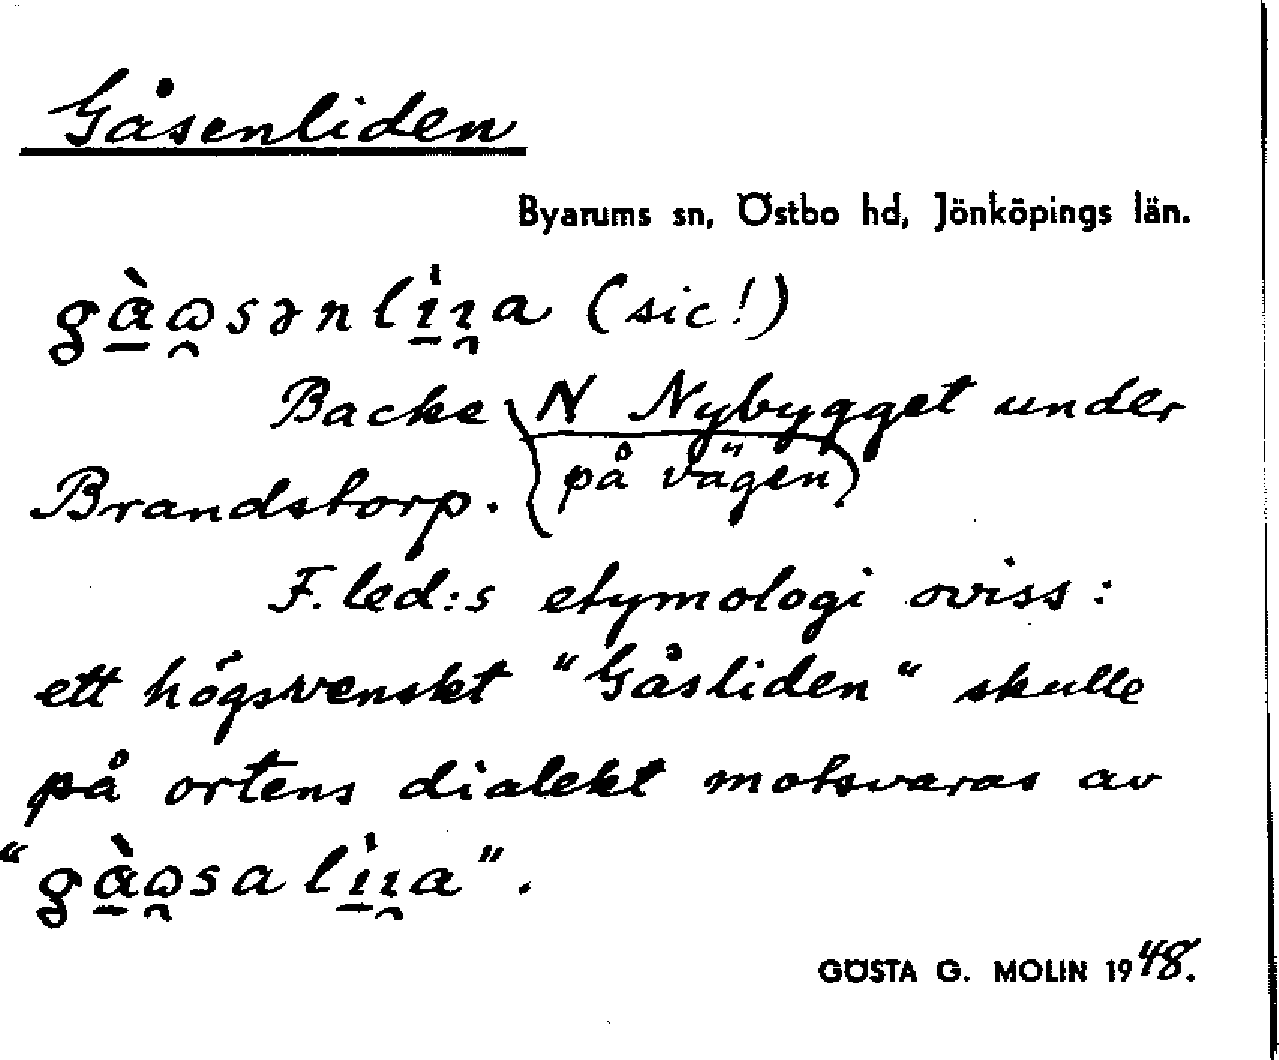 Gåsenliden
Byarums sn, Östbo hd, Jönköpings län.
gɑ̀ɷsənlı̇ıa (sic!)
Backe N Nybygget under
(på vägen)
Brandstorp.
F. led:s etymologi oviss:
ett högsvenskt "Gåsliden" skulle
på ortens dialekt motsvaras av
"gɑ̀ɷsalı̇ıa".
GÖSTA G. MOLIN 1948.